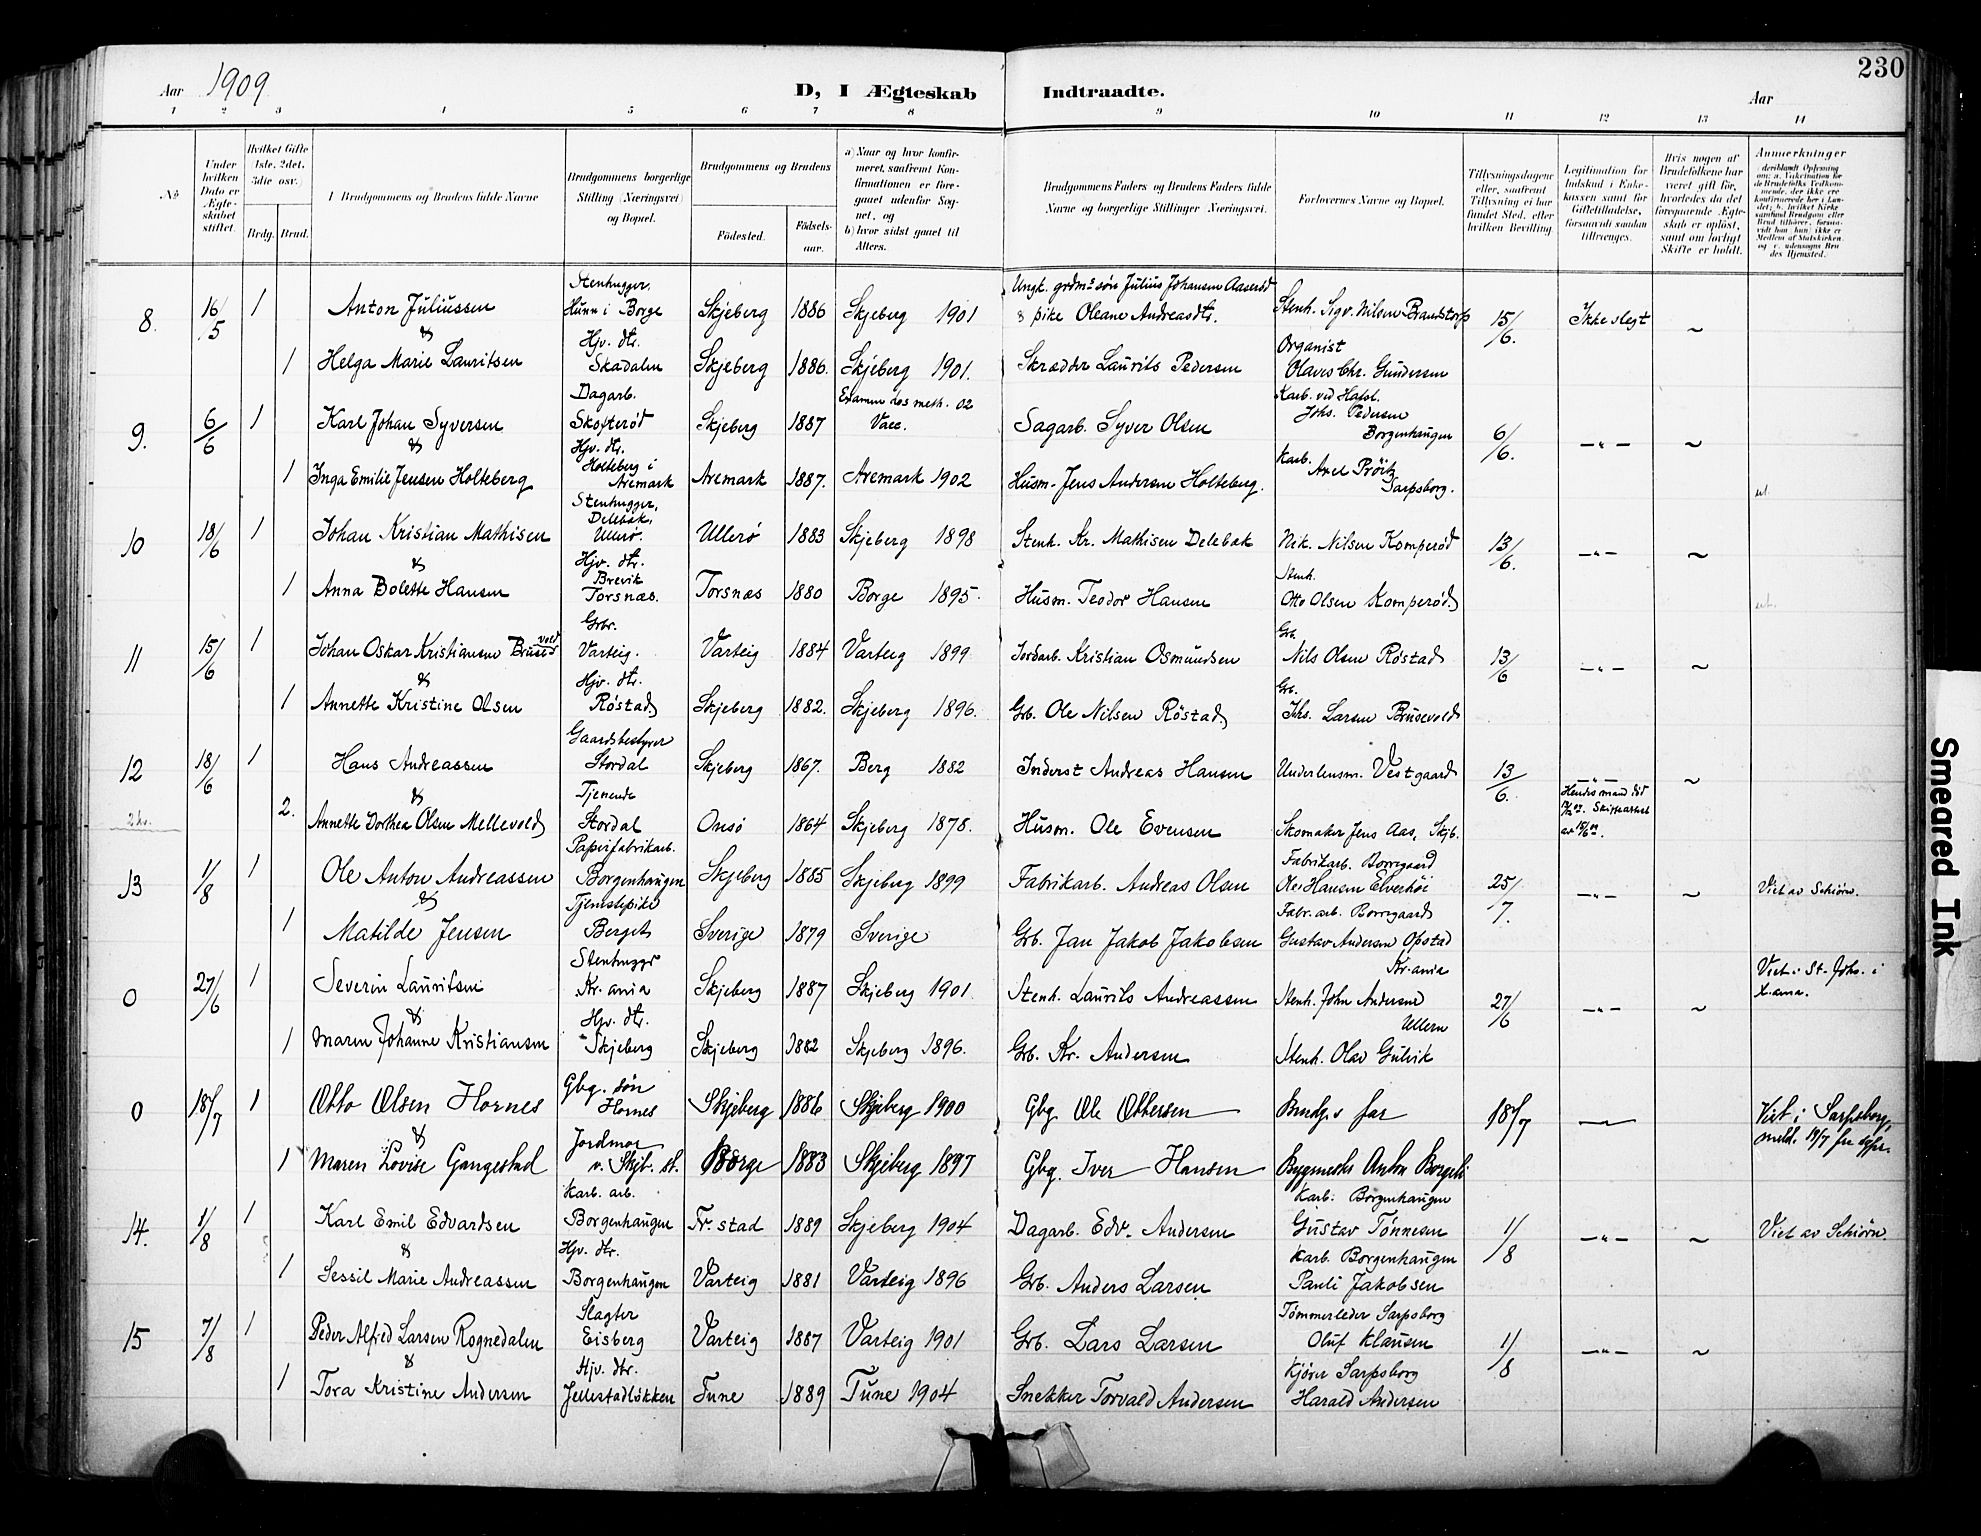 230
Aar 1909
D, I Ægteskab Indtraadte.
Aar
1 2 3 4 5 6 7 8 9 10 11 12 13 14
No
Under hvilken Dato er Ægteskabet stiftet.
Hvilket Gifte 1ste, 2det, 3die osv.
Brdg. Brud.
Brudgommens og Brudens fulde Navne
Brudgommens borgerlige Stilling (Næringsvei) og Bopæl.
Brudgommens og Brudens
Födested. Födsels-aar.
a) Naar og hvor konfirmeret, saafremt Konfirmationen er foregaaet udenfor Sognet, og
b) hvor sidst gaaet til Alters.
Brudgommens Faders og Brudens Faders fulde Navne og borgerlige Stillinger Næringsvei.
Forlovernes Navne og Bopæl.
Tillysningsdagene eller, saafremt Tillysning ei har fundet Sted, efter hvilken Bevilling.
Legitimation for Indskud i Enkekassen samt for Giftetilladelse, forsaavidt saadan tiltrænges.
Hvis nogen af Brudefolkene har været gift för, hvorledes da det foregaaende Ægteskab er oplöst, samt om lovligt Skifte er holdt.
Anmerkninger
Stenhugger. Ungk. grdm.s søn Julius Johansen Aaserød
8. 16/5 1 Anton Juliussen Hunn i Borge Skjeberg 1886 Skjeberg 1901 & pike Oleane Andreasdtr. Stenh. Sigv. Nilsen Brandstorp 15/6. Ikke slegt ~
& Hjv. dtr. Organist
1 Helga Marie Lauritsen Skadalen Skjeberg 1886. Skjeberg 1901. Skrædder Laurits Pedersen Olaves Chr. Gundersen
Dagarb. Karb. ved Hafsl.
9. 6/6 1 Karl Johan Syversen Skofterød Skjeberg 1887 Vacc. Sagarb. Syver Olsen Johs. Pedersen Borgenhaugen 6/6. —"— ~
& Hjv. dtr. Holteberg i Karb.
1 Inga Emilie Jensen Holteberg Aremark Aremark 1887. Aremark 1902 Husm. Jens Andersen Holteberg. Axel Pröitz Sarpsborg.
Stenhugger, Delebæk,
10 18/6 1 Johan Kristian Mathisen Ullerø. Ullerø 1883 Skjeberg 1898 Stenh. Kr. Mathisen Delebæk Nik. Nilsen Komperød 13/6. —"— ~
& Hjv. dtr. Brevik Stenh.
1 Anna Bolette Hansen Torsnæs. Torsnæs 1880 Borge 1895. Husm. Teodor Hansen Otto Olsen Komperød.
Grbr. Grb.
11 15/6 1 Johan Oskar Kristiansen Brusevold Varteig. Varteig 1884 Varteig 1899 Jordarb. Kristian Osmundsen Nils Olsen Röstad 13/6 —"— ~
& Hjv. dtr. Grb.
1 Annette Kristine Olsen Røstad Skjeberg 1882. Skjeberg 1896. Grb. Ole Nilsen Röstad Johs. Larsen Brusevold
Gaardsbestyrer
12 18/6 1 Hans Andreassen Stordal Skjeberg 1867. Berg 1882 Inderst Andreas Hansen Underlensm. Vestgaard 13/6. —"— ~
& Tjenende Hendes mand död
2. Annette Dorthea Olsen Mellevold Stordal Onsö 1864 Skjeberg 1878. Husm. Ole Evensen Skomaker Jens Aas, Skjb.
Papirfabrikarb. Fabrikarb. Borregaard
13 1/8 1 Ole Anton Andreassen Borgenhaugen Skjeberg 1885 Skjeberg 1899 Fabrikarb. Andreas Olsen Ole Hansen Elverhöi 25/7. —"— ~ Viet av Schiörn.
& Tjenstepike Fabr. arb. Borregaard
1 Matilde Jensen Berget Sverige 1879 Sverige Grb. Jan Jakob Jakobsen Gustav Andersen Opstad
Stenhugger Kr.ania
0 27/6 1 Severin Lauritsen Kr. ania Skjeberg 1887 Skjeberg 1901. Stenh. Laurits Andreassen Stenh. John Andersen Ullern 27/6 —"— ~ Viet i St. Johs. i X.ania.
& Hjv. dtr.
1 Maren Johanne Kristiansen Skjeberg Skjeberg 1882 Skjeberg 1896. Grb. Kr. Andersen Stenh. Olav Gulvik
Gbg. søn
0 18/7 1 Otto Olsen Hornes Hornes Skjeberg 1886 Skjeberg 1900 Gbg. Ole Ottersen Brudg.s far 18/7 — Viet i Sarpsborg,
& Jordmor
1 Maren Lovise Gangestad v. Skjb. st. Borge 1883 Skjeberg 1897 Gbg. Iver Hansen Bygmester Anton Borgeli
Karb. arb. Karb. Borgenhaugen
14. 1/8 1 Karl Emil Edvardsen Borgenhaugen Fr.stad 1889 Skjeberg 1904 Dagarb. Edv. Andersen Gustav Tönnesen 1/8 —"— ~ Viet av Schiörn.
& Hjv. dtr. Karb. Borgenhaugen
1 Sessil Marie Andreassen Borgenhaugen Varteig 1881 Varteig 1896 Grb. Anders Larsen Pauli Jakobsen
Slagter Tömmerleder Sarpsborg
15 7/8 1 Peder Alfred Larsen Rognedalen Eisberg Varteig 1887 Varteig 1901 Grb. Lars Larsen Oluf Klausen 1/8 —"— ~
& Hjv. dtr. Kjörer Sarpsborg
1 Tora Kristine Andersen Jellestadlökken Tune 1889 Tune 1904 Snekker Torvald Andersen Harald Andersen
Smeared Ink